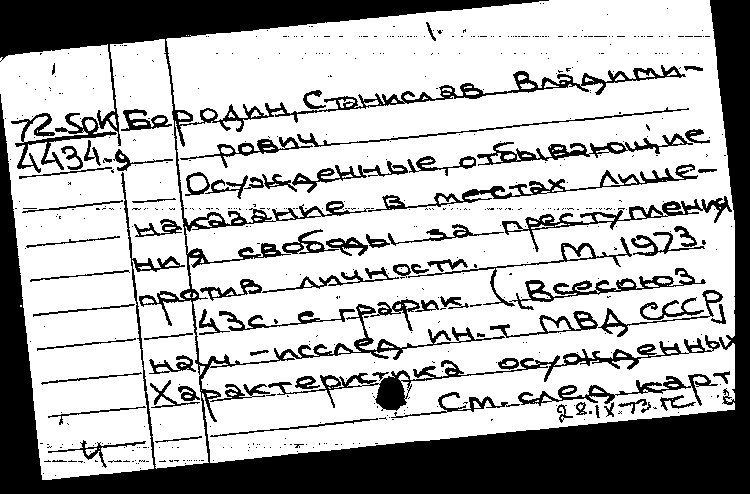 1.
72-50К Бородин, Станислав Владими-
4434-д рович.
Осужденные, отбывающие
наказание в местах лише-
ния свободы за преступления
против личности. М., 1973.
43с. с график. ([Всесоюз.
науч.-исслед. ин-т МВД СССР]
Характеристика осужденных
См. след. карт
28.IX-73.ГС
Ч